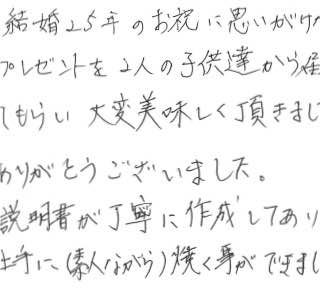 結婚25年のお祝に思いがけ
プレゼントを2人の子供達から届
てもらい 大変美味しく頂きまし
ありがとうございました。
説明書が丁寧に作成してあり
上手に(素人ながら)焼く事ができまし